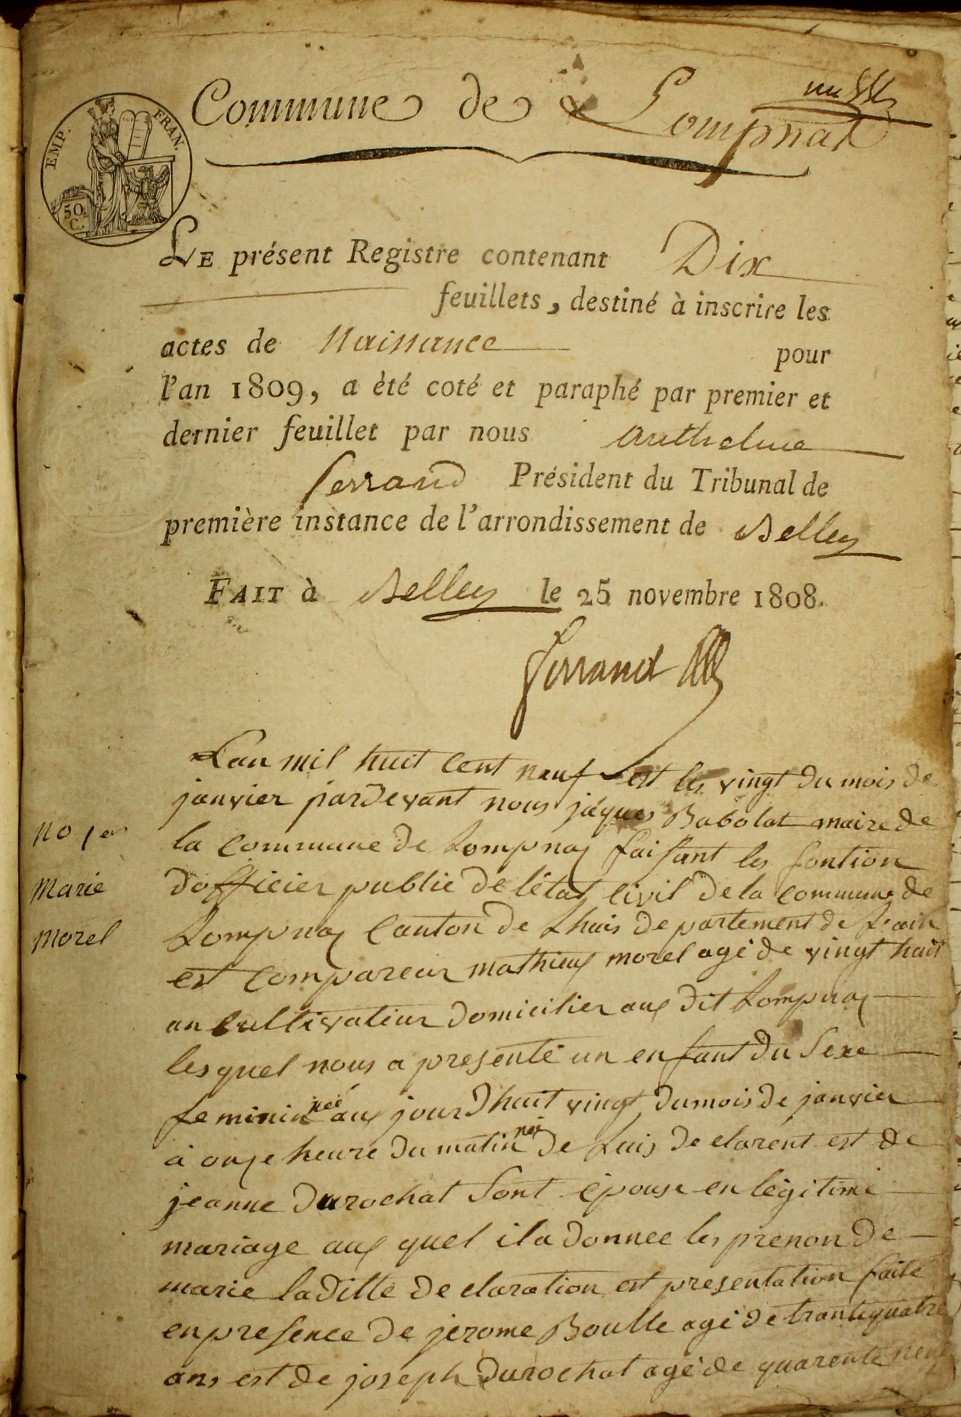 un
Commune de Lompnas
EMP. FRAN.
50 C.
LE présent Registre contenant Dix
feuillets, destiné à inscrire les
actes de Naissance pour
l'an 1809, a été coté et paraphé par premier et
dernier feuillet par nous Anthelme
Ferrand Président du Tribunal de
première instance de l'arrondissement de Belley
FAIT à Belley le 25 novembre 1808.
Ferrand
Lan mil huit Cent neuf est les vingt du mois de
janvier pardevant nous jaques Babolat maire de
la commune de Lompnas faisant les fontion
dofficier public de létat civil de la commune de
Lompnas Canton de Lhuis departement de Lain
est compareur mathieu morel agé de vingt huit
an Cultivateur domicilier aux dit Lompnas
lesquel nous a presenté un enfant du Sexe
feminin neé aux jourdhuit vingt dumois de janvier
à onze heure du matin de Luis declarent est de
jeanne durochat Sont épouse en légitime
mariage aux quel il a donnee les prenon de
marie Laditte declaration est presentation faite
enpresence de jerome Boulle agé de trante quatre
ans est de joseph Durochat agé de quarente neuf
no 1er
Marie
Morel